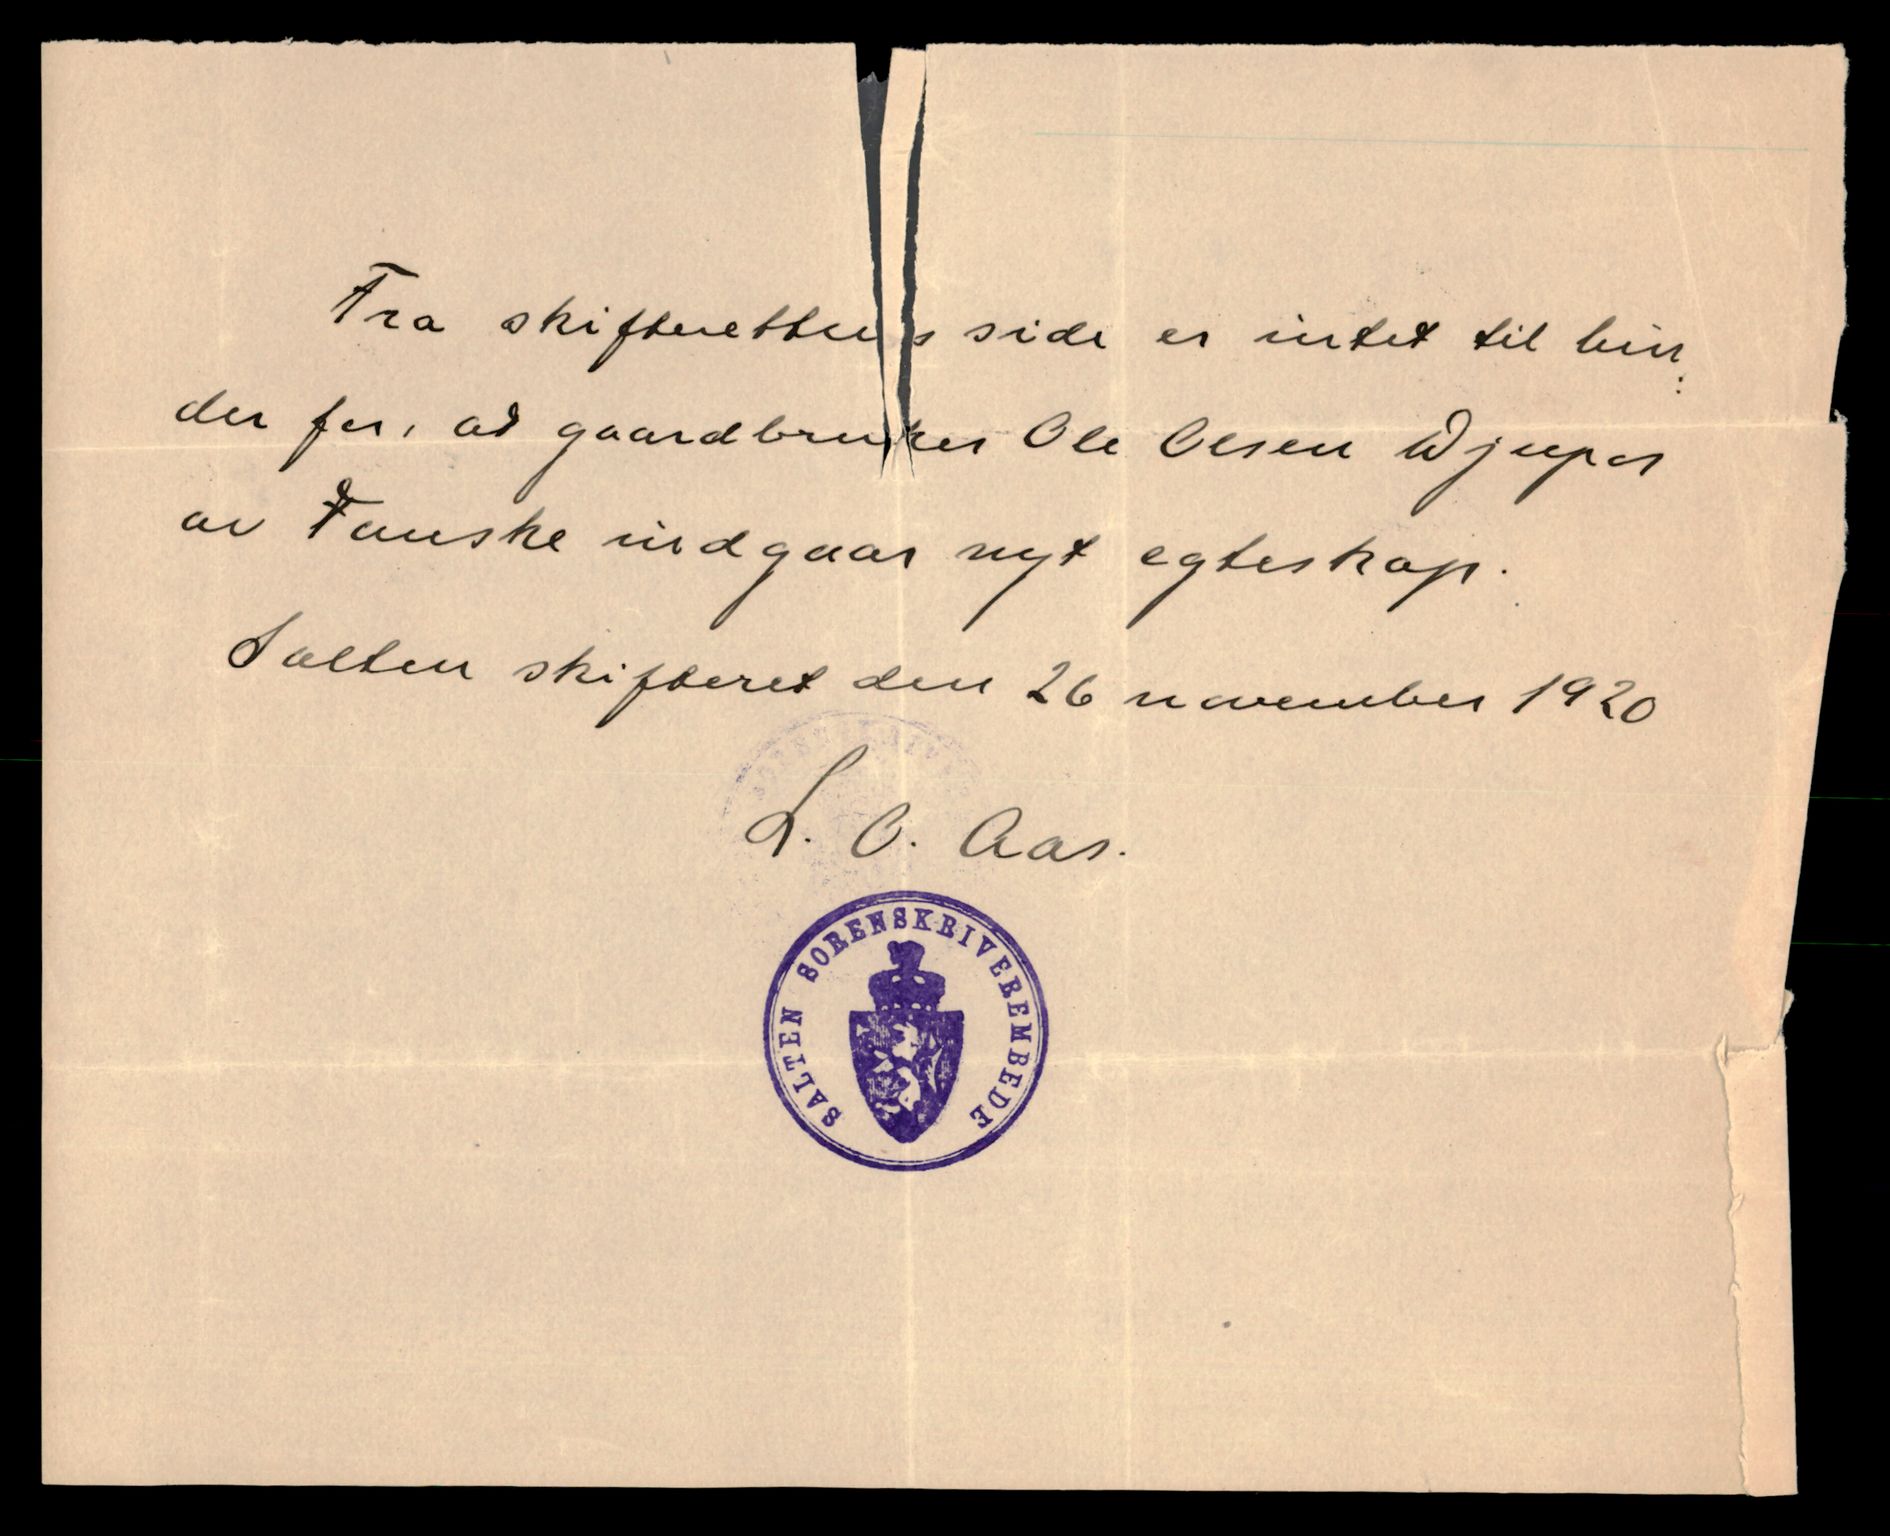 Fra skifterettens side er intet til hin:
der for, at gaardbruker Ole Olsen Djupos
av Fauske indgaar nyt egteskap.
Salten skifteret den 26 november 1920
L. O. Aas.
SALTEN SORENSKRIVEREMBEDE